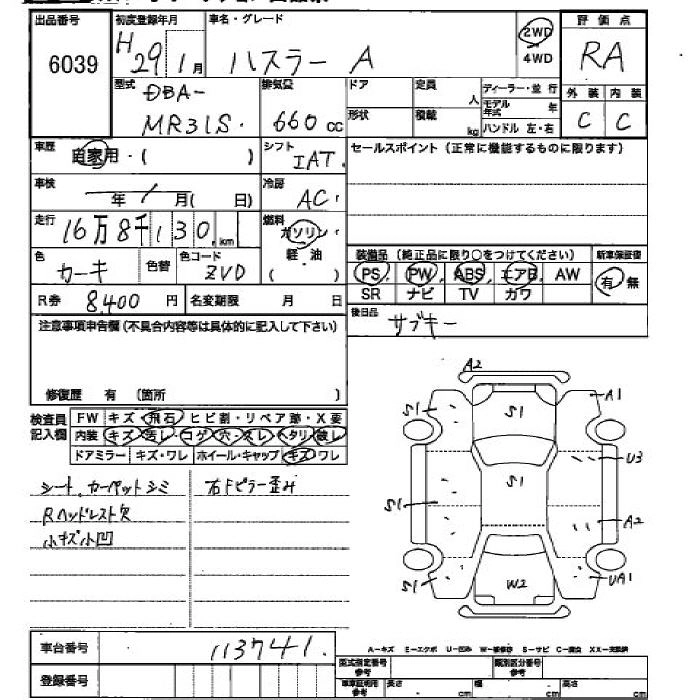 出品番号 初度登録年月 車名・グレード 評価点
6039 H29年1月 ハスラー A 2WD RA
4WD
型式 排気量 ドア 定員 人 ディーラー・並行 外装 内装
DBA- モデル年式 年
MR31S 660cc 形状 積載 kg ハンドル 左・右 C C
車歴 自家用・( ) シフト IAT セールスポイント(正常に機能するものに限ります)
車検 年 月( 日) 冷房 AC
走行 16万8千130km 燃料 ガソリン
軽油
( )
色 カーキ 色替 色コード ZVD
装備品(純正品に限り○をつけてください) 新車保証書
PS PW ABS エアB AW 有・無
SR ナビ TV カワ
R券 8,400円 名変期限 月 日
後日品 サブキー
注意事項申告欄(不具合内容等は具体的に記入して下さい)
修復歴 有 (箇所 )
検査員記入欄 FW キズ・飛石・ヒビ割・リペア跡・X要
内装 キズ・汚レ・コゲ・穴・スレ・ヘタリ・破レ
ドアミラー キズ・ワレ ホイール・キャップ キズ・ワレ
シート、カーペットシミ
Rヘッドレスト欠
小キズ小凹
右Fピラー歪み
A2
S1 S1 A1
U3
S1 S1
A2
S1 W2 UA1
車台番号 113741
登録番号
A-キズ E-エクボ U-凹み W-補修跡 S-サビ C-腐食 XX-交換済
型式指定番号 類別区分番号
車庫証明用参考 長さ cm 幅 cm 高さ cm